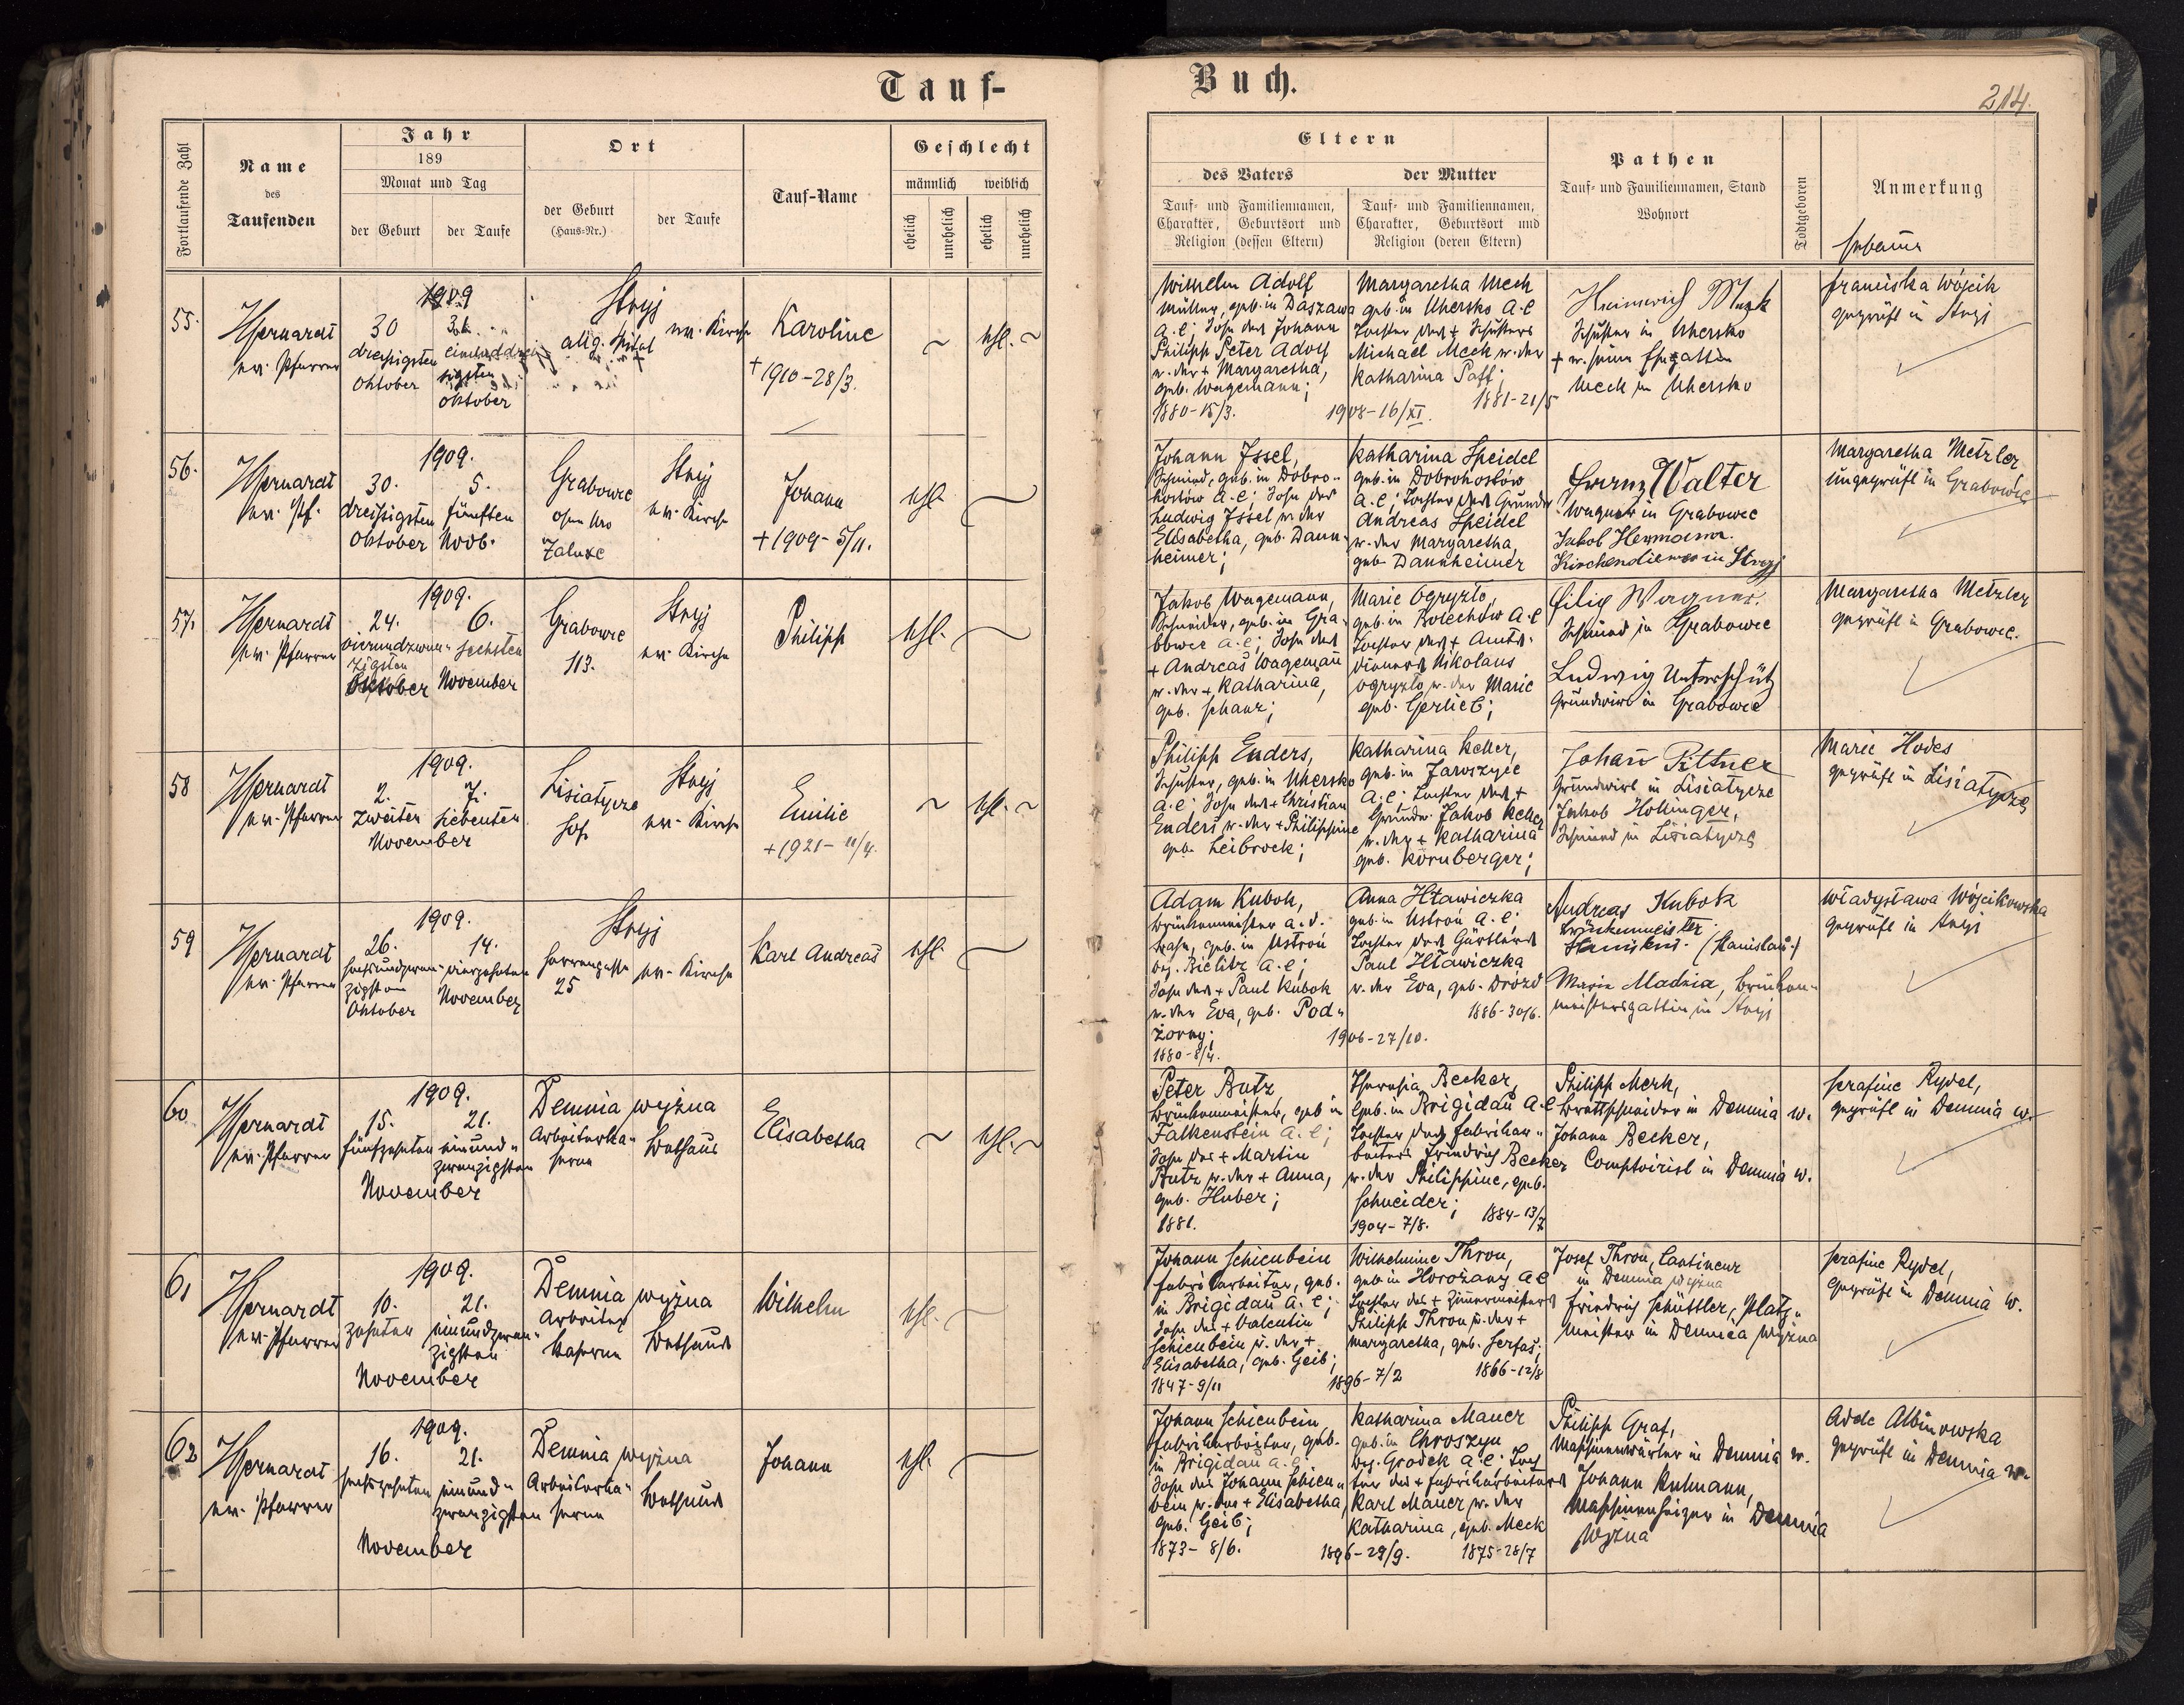 Tauf-
Buch.
214.
Fortlaufende Zahl
Name
des
Taufenden
Jahr
189
Monat und Tag
der Geburt
der Taufe
Ort
der Geburt
(Haus-Nr.)
der Taufe
Tauf-Name
Geschlecht
männlich
weiblich
ehelich
unehelich
ehelich
unehelich
Eltern
des Vaters
Tauf- und Familiennamen,
Charakter, Geburtsort und
Religion (dessen Eltern)
der Mutter
Tauf- und Familiennamen,
Charakter, Geburtsort und
Religion (deren Eltern)
Pathen
Tauf- und Familiennamen, Stand
Wohnort
Todtgeboren
Anmerkung
Hebamme
55.
ev. Pfarrer
1909
30
dreissigsten
Oktober
31.
einunddreis
sigsten
Oktober
Stryj
allg. Spital
ev. Kirche
Karoline
+ 1910-28/3.
ehl.
Wilhelm Adolf
Müller, geb. in Daszawa
a. C; Sohn des Johann
Philipp Peter Adolf
u. der + Margaretha,
geb. Wagemann;
1880-15/3.
1908-16/XI.
Margaretha Meck
geb. in Uhersko a. C
Tochter des + Schusters
Michael Meck u. der
Katharina Paff;
1881-21/5
Heinrich Meck
Schuster in Uhersko
+ u. seine Ehegattin
Meck in Uhersko
Franciska Wójcik
geprüft in Stryj
56.
ev. Pf.
1909.
30.
dreissigsten
Oktober
5.
fünften
Novb.
Grabowce
ohne Nro
Załuże
Stryj
ev. Kirche
Johann
+ 1909-5/11.
ehl.
Johann Issel,
Schmied, geb. in Dobro-
hostów a. C; Sohn des
Ludwig Issel u. der
Elisabetha, geb. Dann-
heimer;
Katharina Speidel
geb. in Dobrohostów
a. C; Tochter des Grundw
Andreas Speidel
u. der Margaretha,
geb. Dannheimer
Franz Walter
Wagner in Grabowce
Jakob Hermann.
Kirchendiener in Stryj
Margaretha Metzler
ungeprüft in Grabowce
57.
ev. Pfarrer
1909.
24.
vierundzwan-
zigsten
Oktober
6.
sechsten
November
Grabowce
113.
Stryj
ev. Kirche
Philipp
ehl.
Jakob Wagemann,
Schneider, geb. in Gra-
bowce a. C; Sohn des
+ Andreas Wagemann
u. der + Katharina,
geb. Schanz;
Marie Ogryzło,
geb. in Bolechów a. C
Tochter des + Amts-
dieners Nikolaus
Ogryzło u. der Marie
geb. Gerlieb;
Filip Wagner.
Schmied in Grabowce
Ludwig Unterschütz
Grundwirt in Grabowce
Margaretha Metzler
geprüft in Grabowce.
58
ev. Pfarrer
1909.
2.
zweiten
7.
siebenten
November
Lisiatycze
Hof
Stryj
ev. Kirche
Emilie
+ 1921-11/4.
ehl.
Philipp Enders,
Schuster, geb. in Uhersko
a. C; Sohn des + Christian
Enders u. der + Philippine
geb. Leibrock;
Katharina Keller,
geb. in Jaroszyce
a. C; Tochter des +
Grundw. Jakob Keller
u. der + Katharina
geb. Körnberger;
Johann Pittner
Grundwirt in Lisiatycze
Jakob Hollinger,
Schmied in Lisiatycze
Marie Hodes
geprüft in Lisiatycze
59
ev. Pfarrer
1909.
26.
sechsundzwan-
zigsten
Oktober
14.
vierzehnten
November
Stryj
Herrengasse
25
ev. Kirche
Karl Andreas
ehl.
Adam Kubok,
Brückenmeister a. d.
Bahn, geb. in Ustroń
Bez. Bielitz a. C;
Sohn des + Paul Kubok
u. der Eva, geb. Pod-
żorny;
1880-8/4.
1906-27/10.
Anna Hławiczka
geb. in Ustroń a. C;
Tochter des Gärtlers
Paul Hławiczka
u. der Eva, geb. Drózd
1886-30/6.
Andreas Kubok
Brückenmeister
(Stanislau.)
Marie Madzia, Brücken-
meistersgattin in Stryj
Władysława Wójcikowska
geprüft in Stryj
60
ev. Pfarrer
1909.
15.
fünfzehnten
21.
einund-
zwanzigsten
November
Demnia wyżna
Arbeiterka-
serne
Bethaus
Elisabetha
ehl.
Peter Butz
Brückenmeister, geb. in
Falkenstein a. C;
Sohn des + Martin
Butz u. der + Anna,
geb. Huber;
1881.
Theresia Becker,
geb. in Brigidau a. C
Tochter des Fabrikar-
beiters Friedrich Becker
u. der Philippine, geb.
Schneider;
1904-7/8.
1884-13/7
Philipp Merk,
Brettschneider in Demnia w.
Johann Becker,
Comptoirist in Demnia w.
Serafine Rydel,
geprüft in Demnia w.
61
ev. Pfarrer
1909.
10.
zehnten
21.
einundzwan-
zigsten
November
Demnia wyżna
Arbeiter
kaserne
Bethaus
Wilhelm
ehl.
Johann Schienbein
Fabrikarbeiter, geb.
in Brigidau a. C;
Sohn des + Valentin
Schienbein u. der +
Elisabetha, geb. Geib;
1847-9/11
1896-7/2
Wilhelmine Thron,
geb. in Horożany a. C
Tochter des + Zimmermeisters
Philipp Thron u. der +
Margaretha, geb. Serfas;
1866-12/8
Josef Thron, Cantineur
in Demnia wyżna
Friedrich Schüttler, Platz-
meister in Demnia wyżna
Serafine Rydel,
geprüft in Demnia w.
62
ev. Pfarrer
1909.
16.
sechszehnten
21.
einund-
zwanzigsten
November
Demnia wyżna
Arbeiterka-
serne
Bethaus
Johann
ehl.
Johann Schienbein
Fabrikarbeiter, geb.
in Brigidau a. C.
Sohn des Johann Schien-
bein u. der + Elisabetha,
geb. Geib;
1873-8/6.
1896-29/9.
Katharina Mauer
geb. in Chroszyn
Bez. Grodek a. C; Toch
ter des + Fabrikarbeiters
Karl Mauer u. der
Katharina, geb. Meck
1875-28/7
Philipp Graf,
Maschinenwärter in Demnia w.
Johann Kulmann,
Maschinenheizer in Demnia
Wyżna
Adele Albinowska
geprüft in Demnia w.